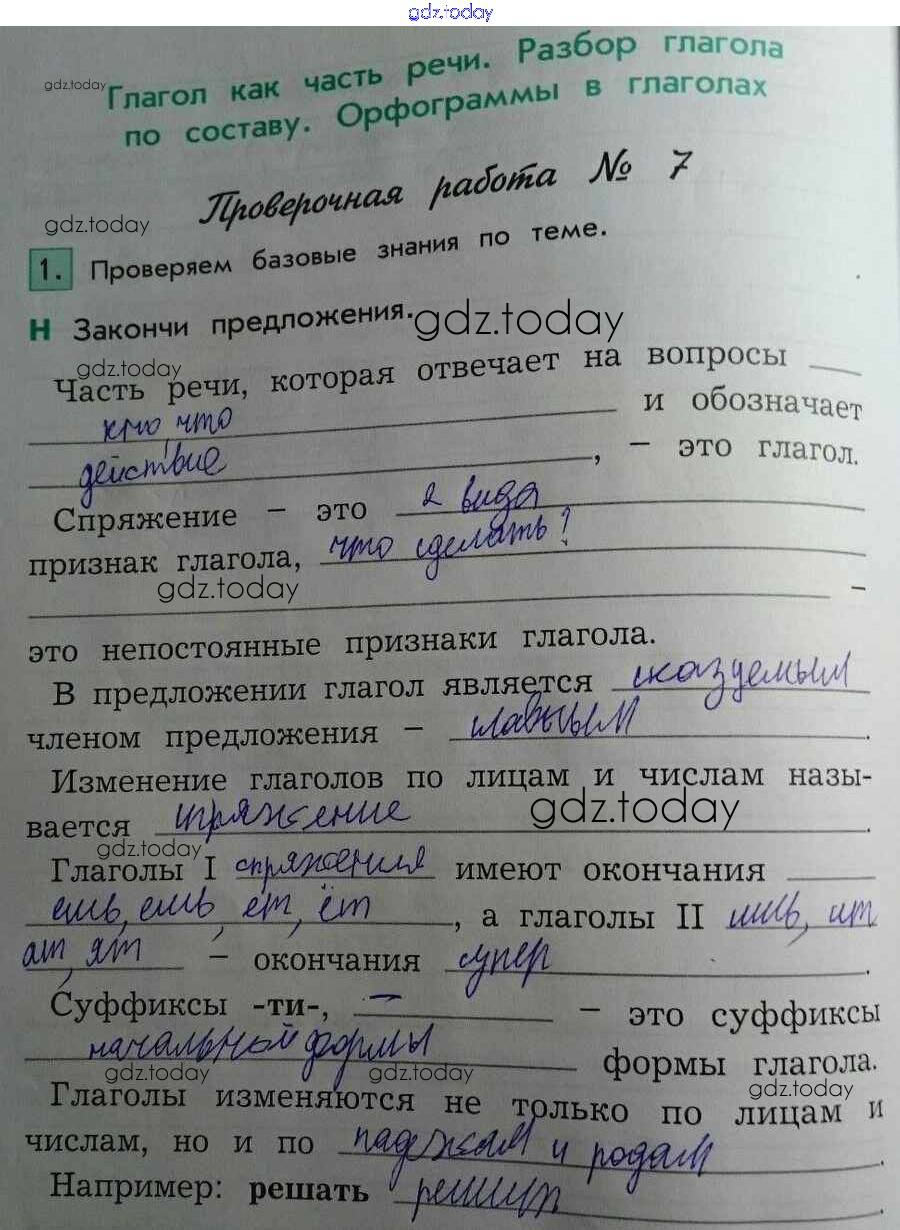 gdz.today
Глагол как часть речи. Разбор глагола
gdz.today
по составу. Орфограммы в глаголах
Проверочная работа № 7
gdz.today
1. Проверяем базовые знания по теме.
Н Закончи предложения.
gdz.today
gdz.today
Часть речи, которая отвечает на вопросы
кто, что и обозначает
действие, – это глагол.
Спряжение – это 2 вида
признак глагола, что сделать?
gdz.today
–
это непостоянные признаки глагола.
В предложении глагол является сказуемым
членом предложения – главным.
Изменение глаголов по лицам и числам назы-
вается спряжение.
gdz.today
gdz.today
Глаголы I спряжения имеют окончания
ешь, ет, ёт, а глаголы II ишь, ит
ат, ят – окончания супер.
Суффиксы -ти-, — – это суффиксы
начальной формы формы глагола.
gdz.today
gdz.today
gdz.today
Глаголы изменяются не только по лицам и
числам, но и по падежам и родам.
Например: решать